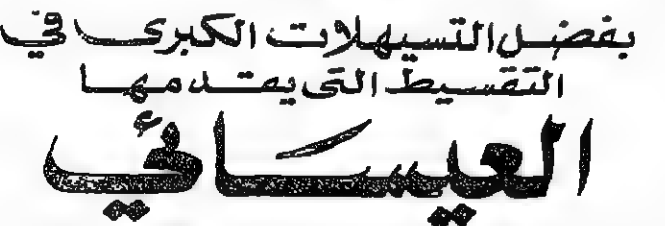 بفضل التسيهلات الكبرى في
التقسيط التى يقدمها
العيسائي